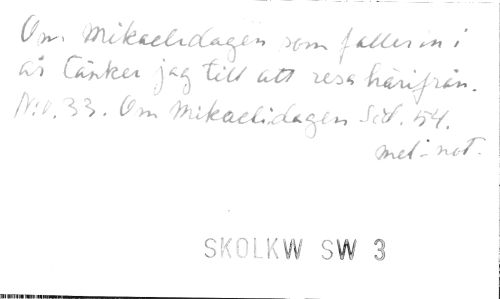 Om Mikaelidagen som faller in i
år tänker jag till att resa härifrån.
N:o. 33. Om Mikaelidagen Sid. 54.
mel-not.
SKOLKW SW 3